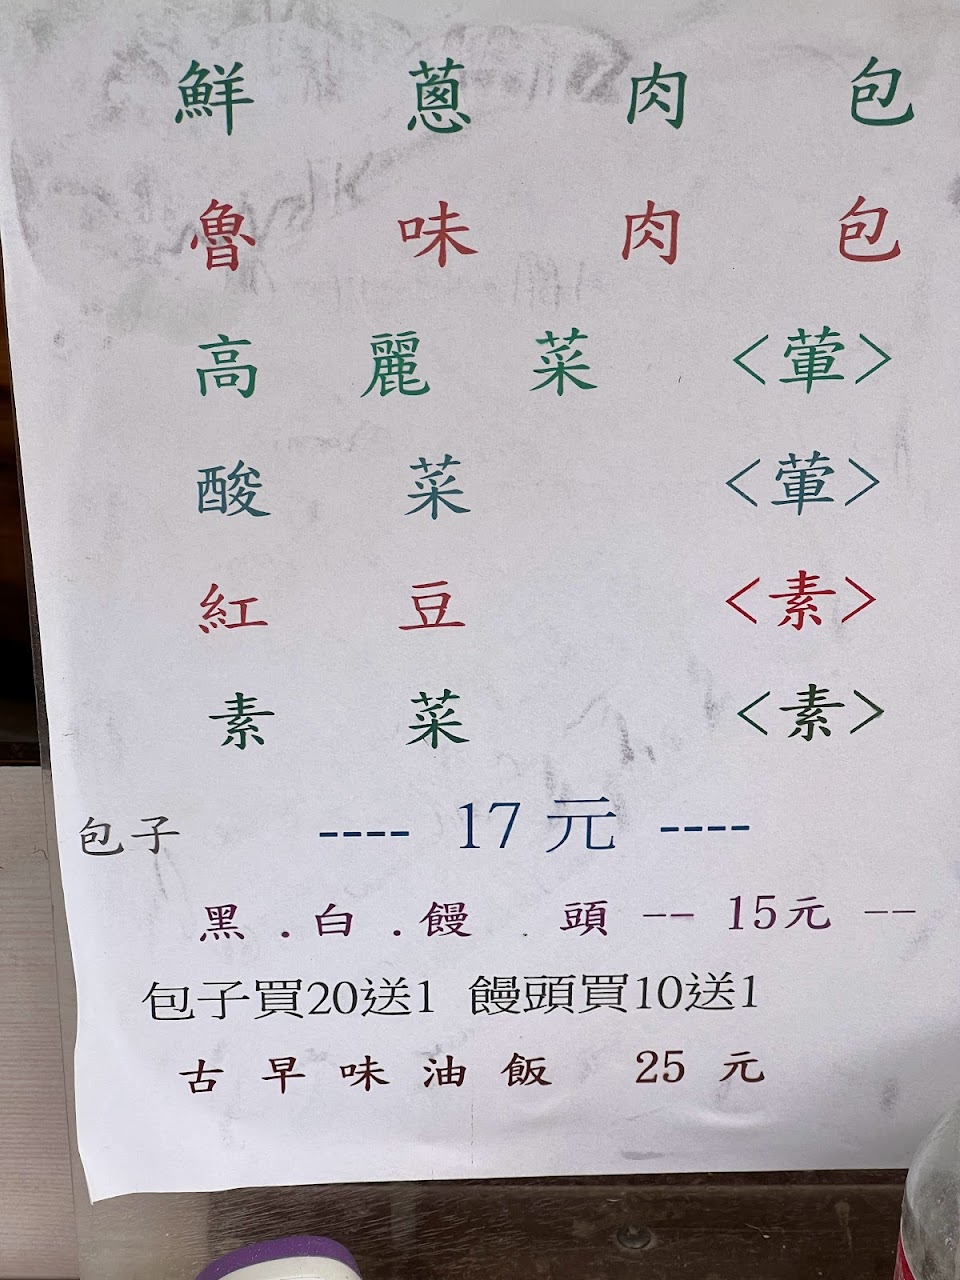 鮮蔥肉包
魯味肉包
高麗菜<葷>
酸菜<葷>
紅豆<素>
素菜<素>
包子 ---- 17元 ----
黑.白.饅頭 -- 15元 --
包子買20送1 饅頭買10送1
古早味油飯 25元